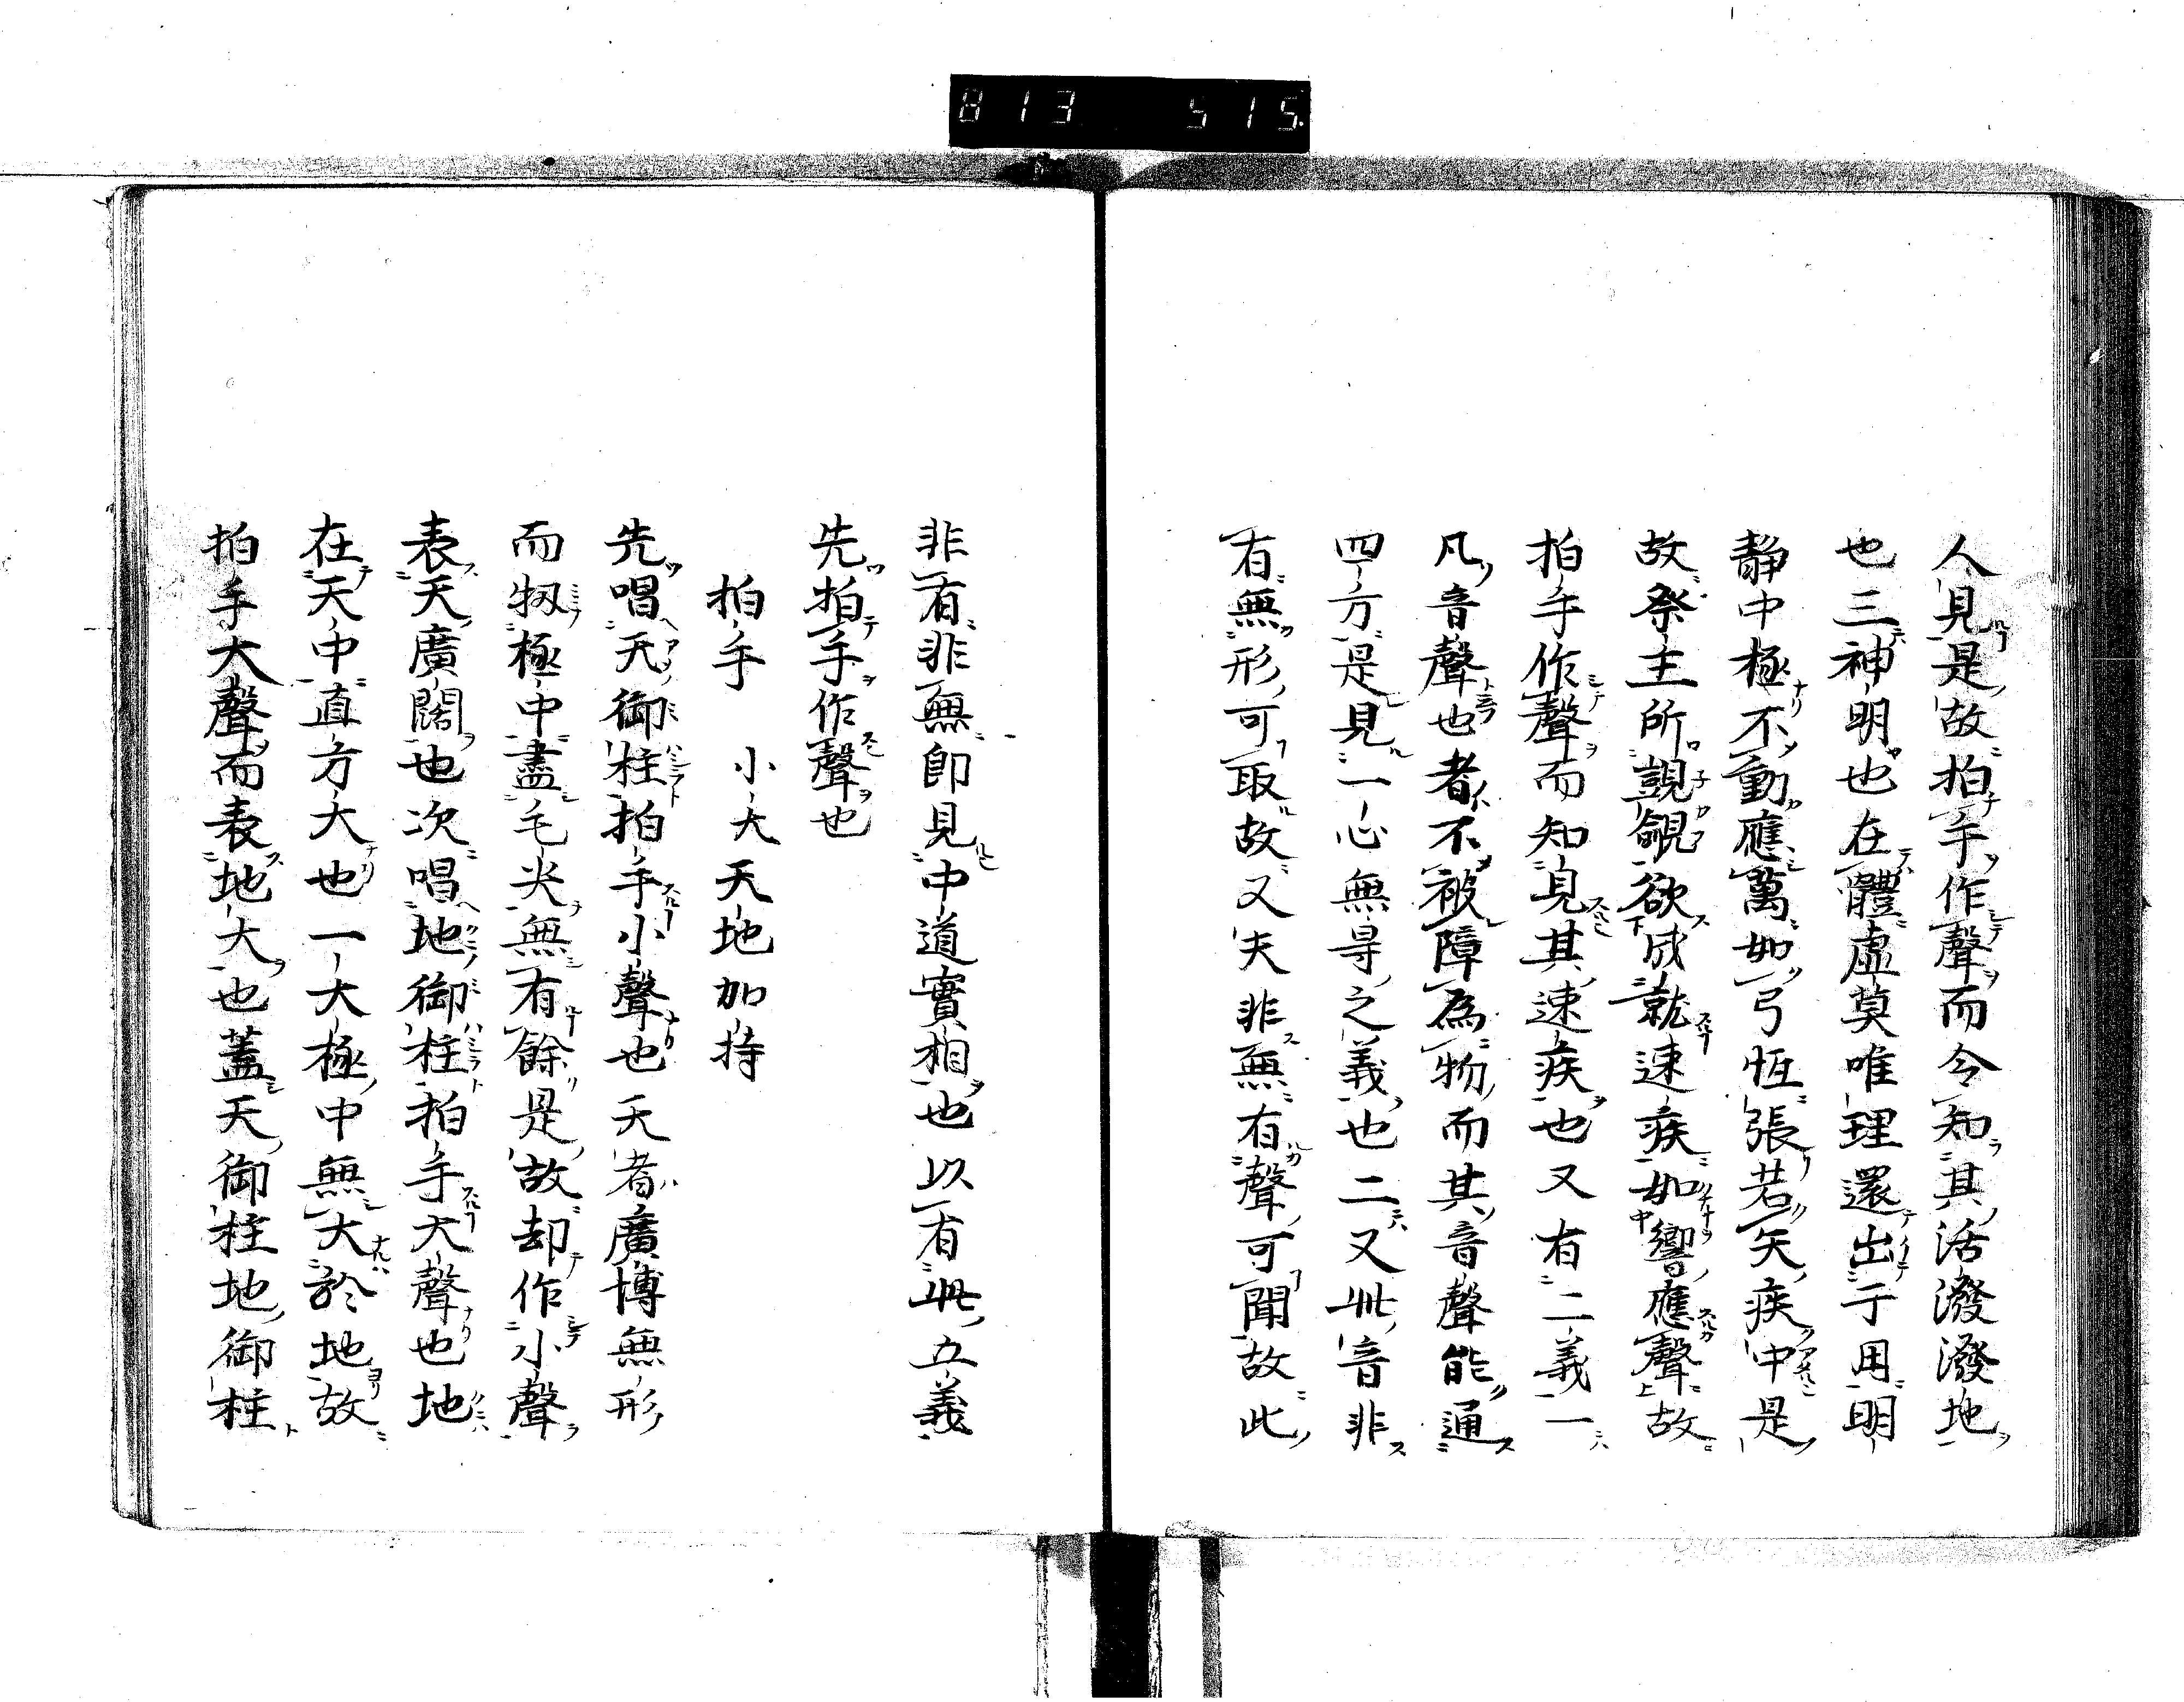 813 515
人見是故拍手作聲而令知其活潑潑地
也三神明也在體虛莫唯理還出于用明
靜中極不動應萬如弓恆張若矢疾中是
故祭主所覬覦欲成就速疾如響應聲故
拍手作聲而知見其速疾也又有二義一
凡音聲也者不被障為物而其音聲能通
四方是見一心無㝵之義也二又此音非
有無形可取故又夫非無有聲可聞故此
非有非無即見中道實相也以有此五義
先拍手作聲也
拍手 小大天地加持
先唱天御柱拍手小聲也天者廣博無形
而物極中盡毛尖無有餘是故却作小聲
表天廣闊也次唱地御柱拍手大聲也地
在天中直方大也一大極中無大於地故
拍手大聲而表地大也蓋天御柱地御柱